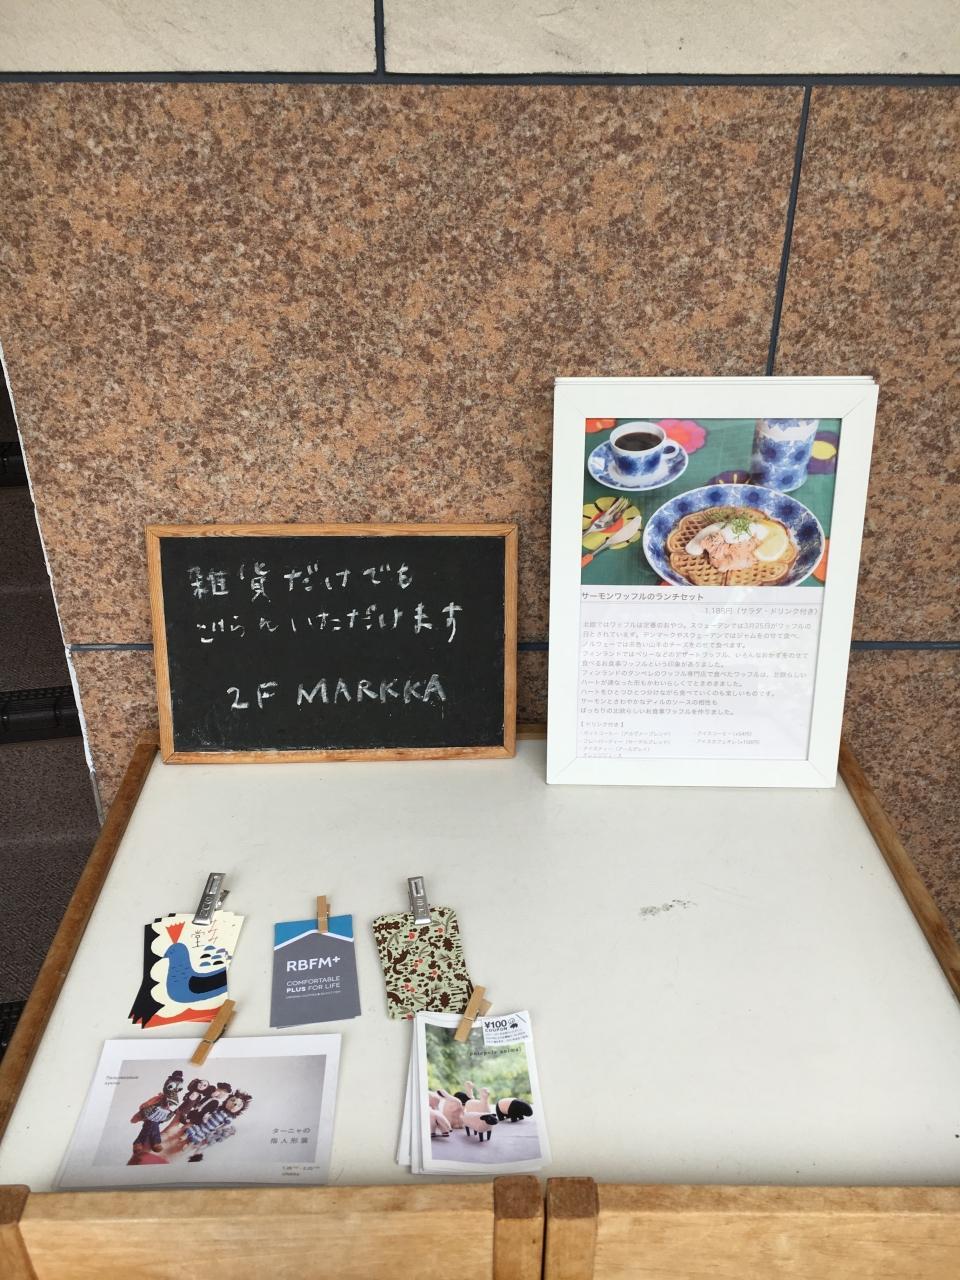 雑貨だけでも
ごらんいただけます
2F MARKKA
サーモンワッフルのランチセット
1,185円（サラダ・ドリンク付き）
北欧ではワッフルは定番のおやつ。スウェーデンでは3月25日がワッフルの
日とされています。デンマークやスウェーデンではジャムをのせて食べ、
ノルウェーでは茶色い山羊のチーズをのせて食べます。
フィンランドではベリーなどのデザートワッフル、いろんなおかずをのせて
食べるお食事ワッフルという印象がありました。
フィンランドのタンペレのワッフル専門店で食べたワッフルは、北欧らしい
ハートが連なった形もかわいらしくてときめきました。
ハートをひとつひとつ分けながら食べていくのも楽しいものです。
サーモンとさわやかなディルのソースの相性も
ばっちりの北欧らしいお食事ワッフルを作りました。
【ドリンク付き】
RBFM+
COMFORTABLE
PLUS FOR LIFE
¥100
COUPON
animal
ターニャの
指人形展